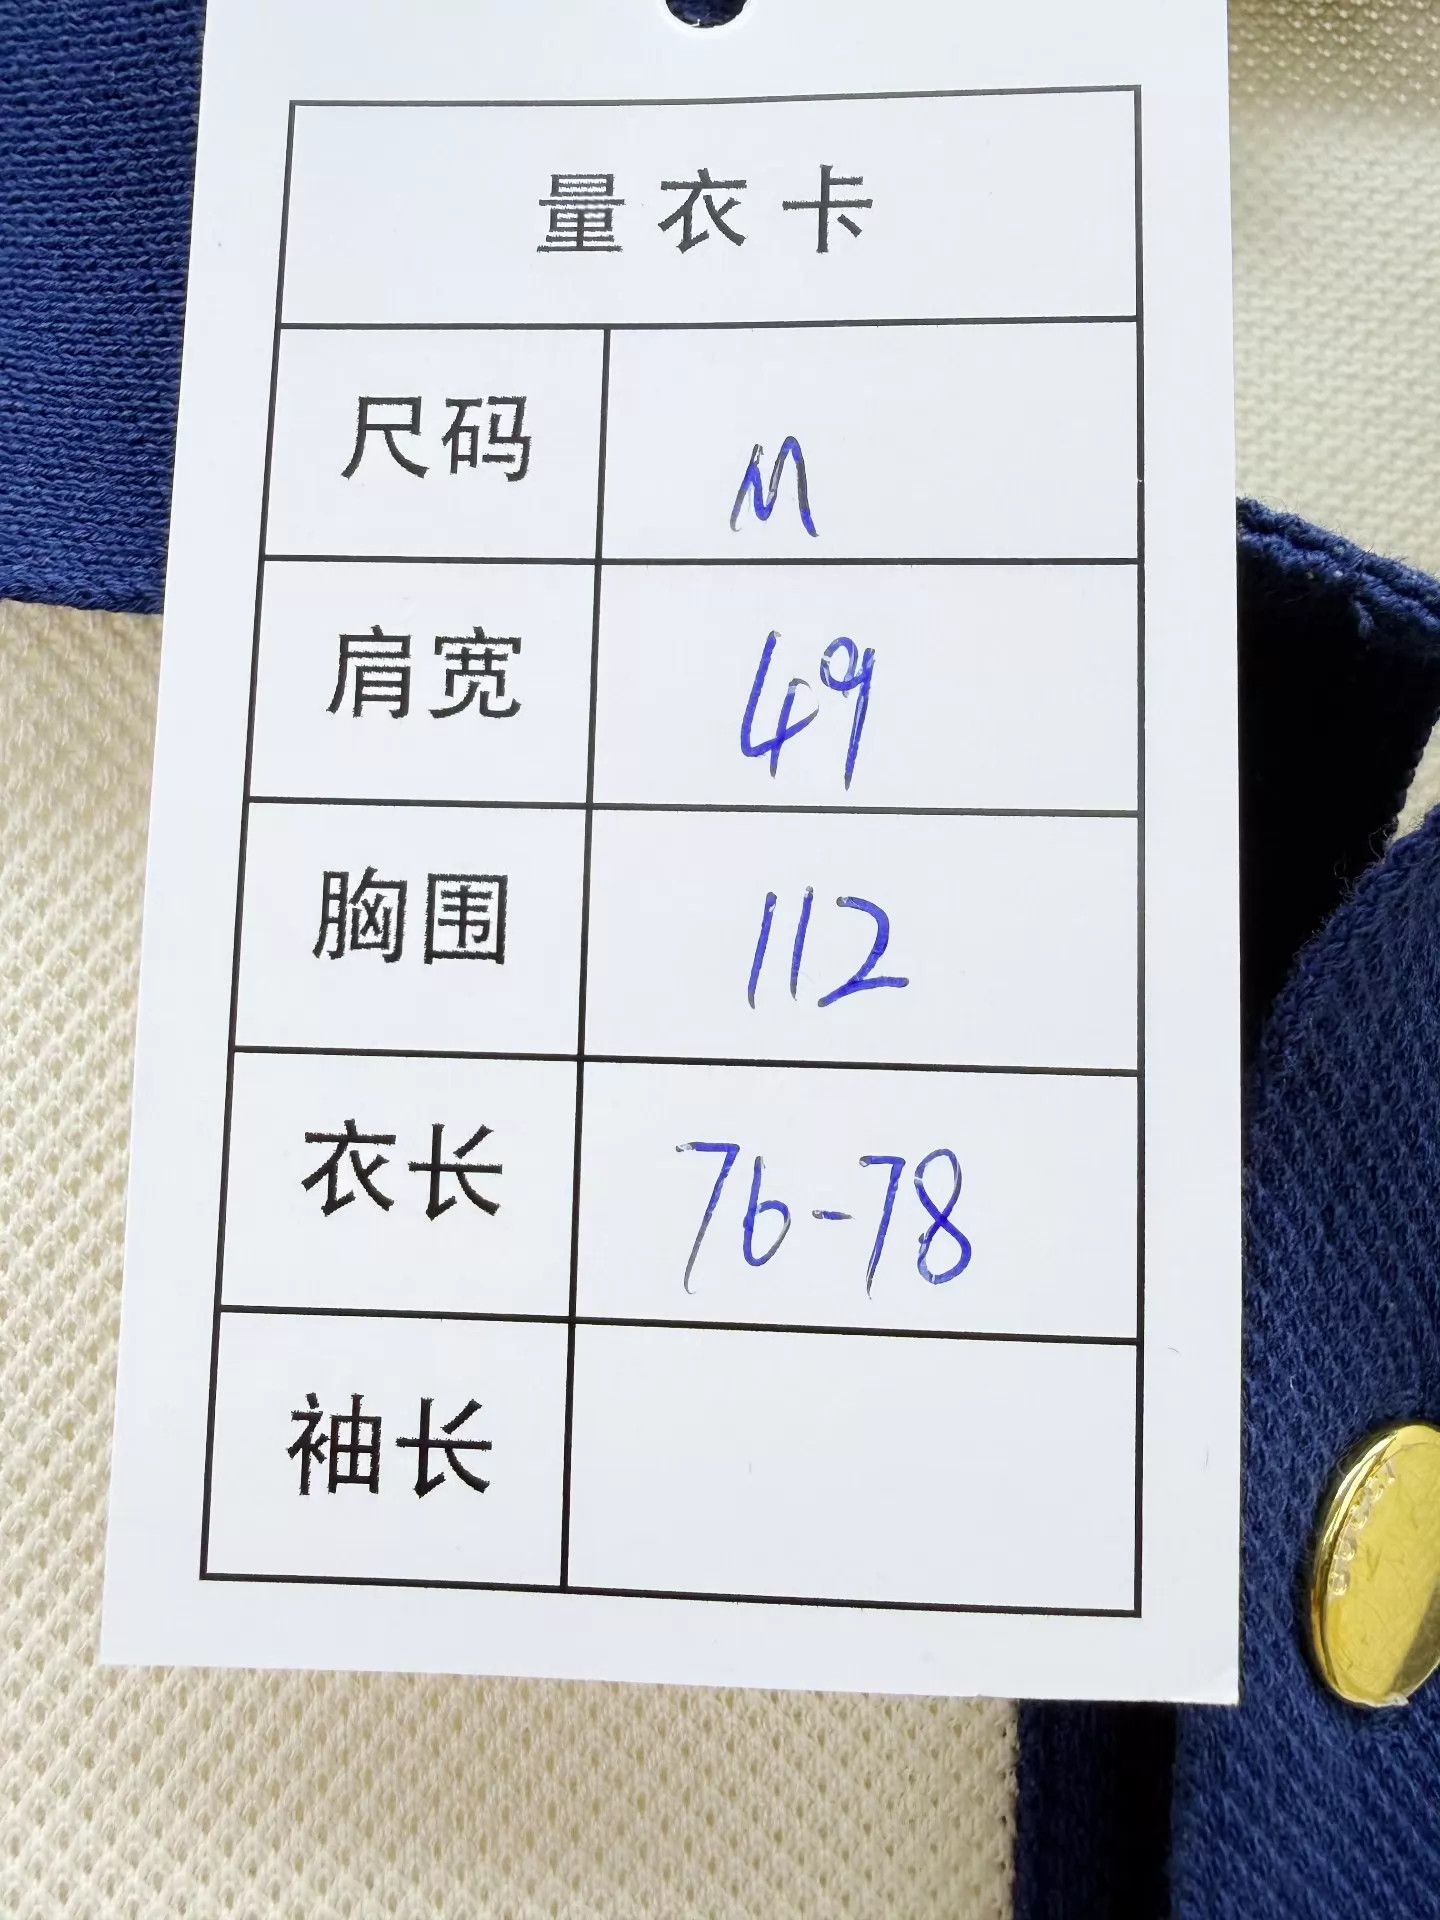 量衣卡
尺码 M
肩宽 49
胸围 112
衣长 76-78
袖长